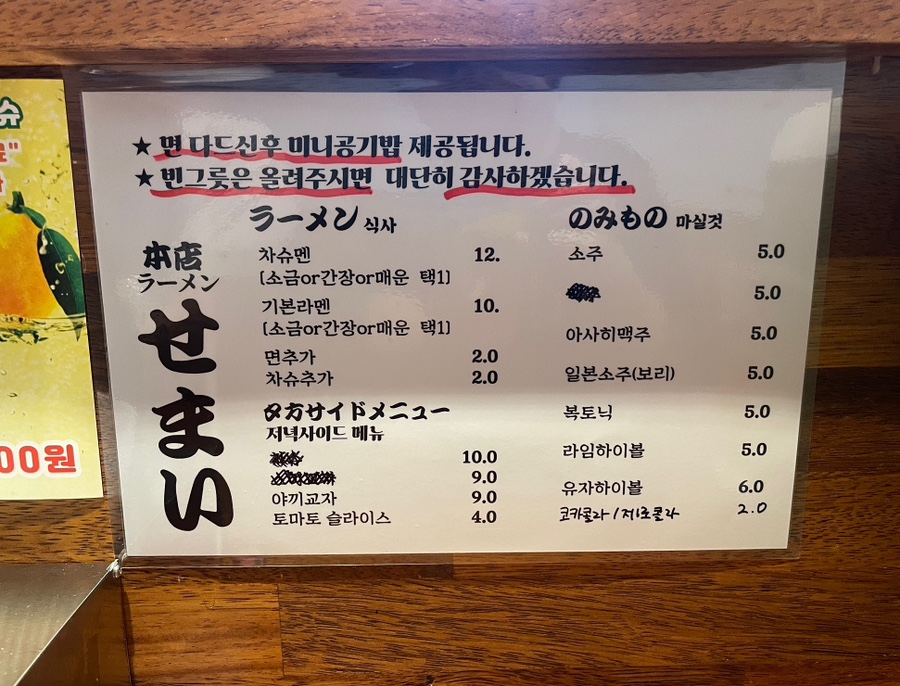 ★ 면 다드신후 미니공기밥 제공됩니다.
★ 빈그릇은 올려주시면 대단히 감사하겠습니다.
本店
ラーメン
せまい
ラーメン 식사
차슈멘 12.
[소금or간장or매운 택1]
기본라멘 10.
[소금or간장or매운 택1]
면추가 2.0
차슈추가 2.0
夕方サイドメニュー
저녁사이드 메뉴
10.0
9.0
야끼교자 9.0
토마토 슬라이스 4.0
のみもの 마실것
소주 5.0
5.0
아사히맥주 5.0
일본소주(보리) 5.0
복토닉 5.0
라임하이볼 5.0
유자하이볼 6.0
코카콜라 / 제로콜라 2.0
슈
00원